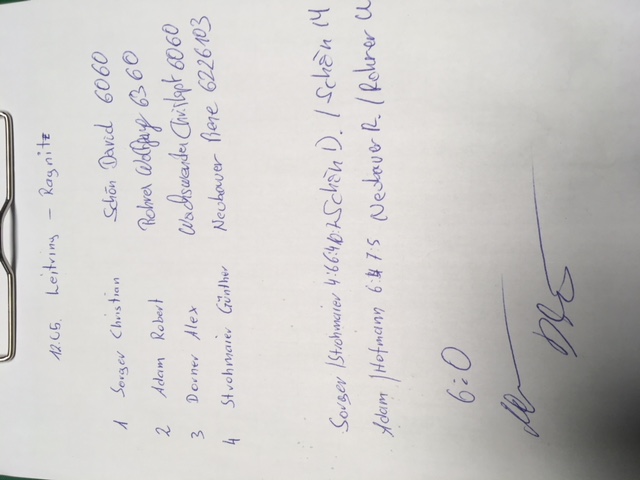 12.05. Leitring - Ragnitz
1 Sorger Christian Schön David 6060
2 Adam Robert Rohrer Wolfgang 6360
3 Dorner Alex Wachswander Christoph 6060
4 Strohmaier Günther Neubauer Rene 6226103
Sorger / Strohmaier 4:6 6:4 10:2 Schön D. / Schön M
Adam / Hofmann 6:4 7:5 Neubauer R. / Rohrer W
6:0